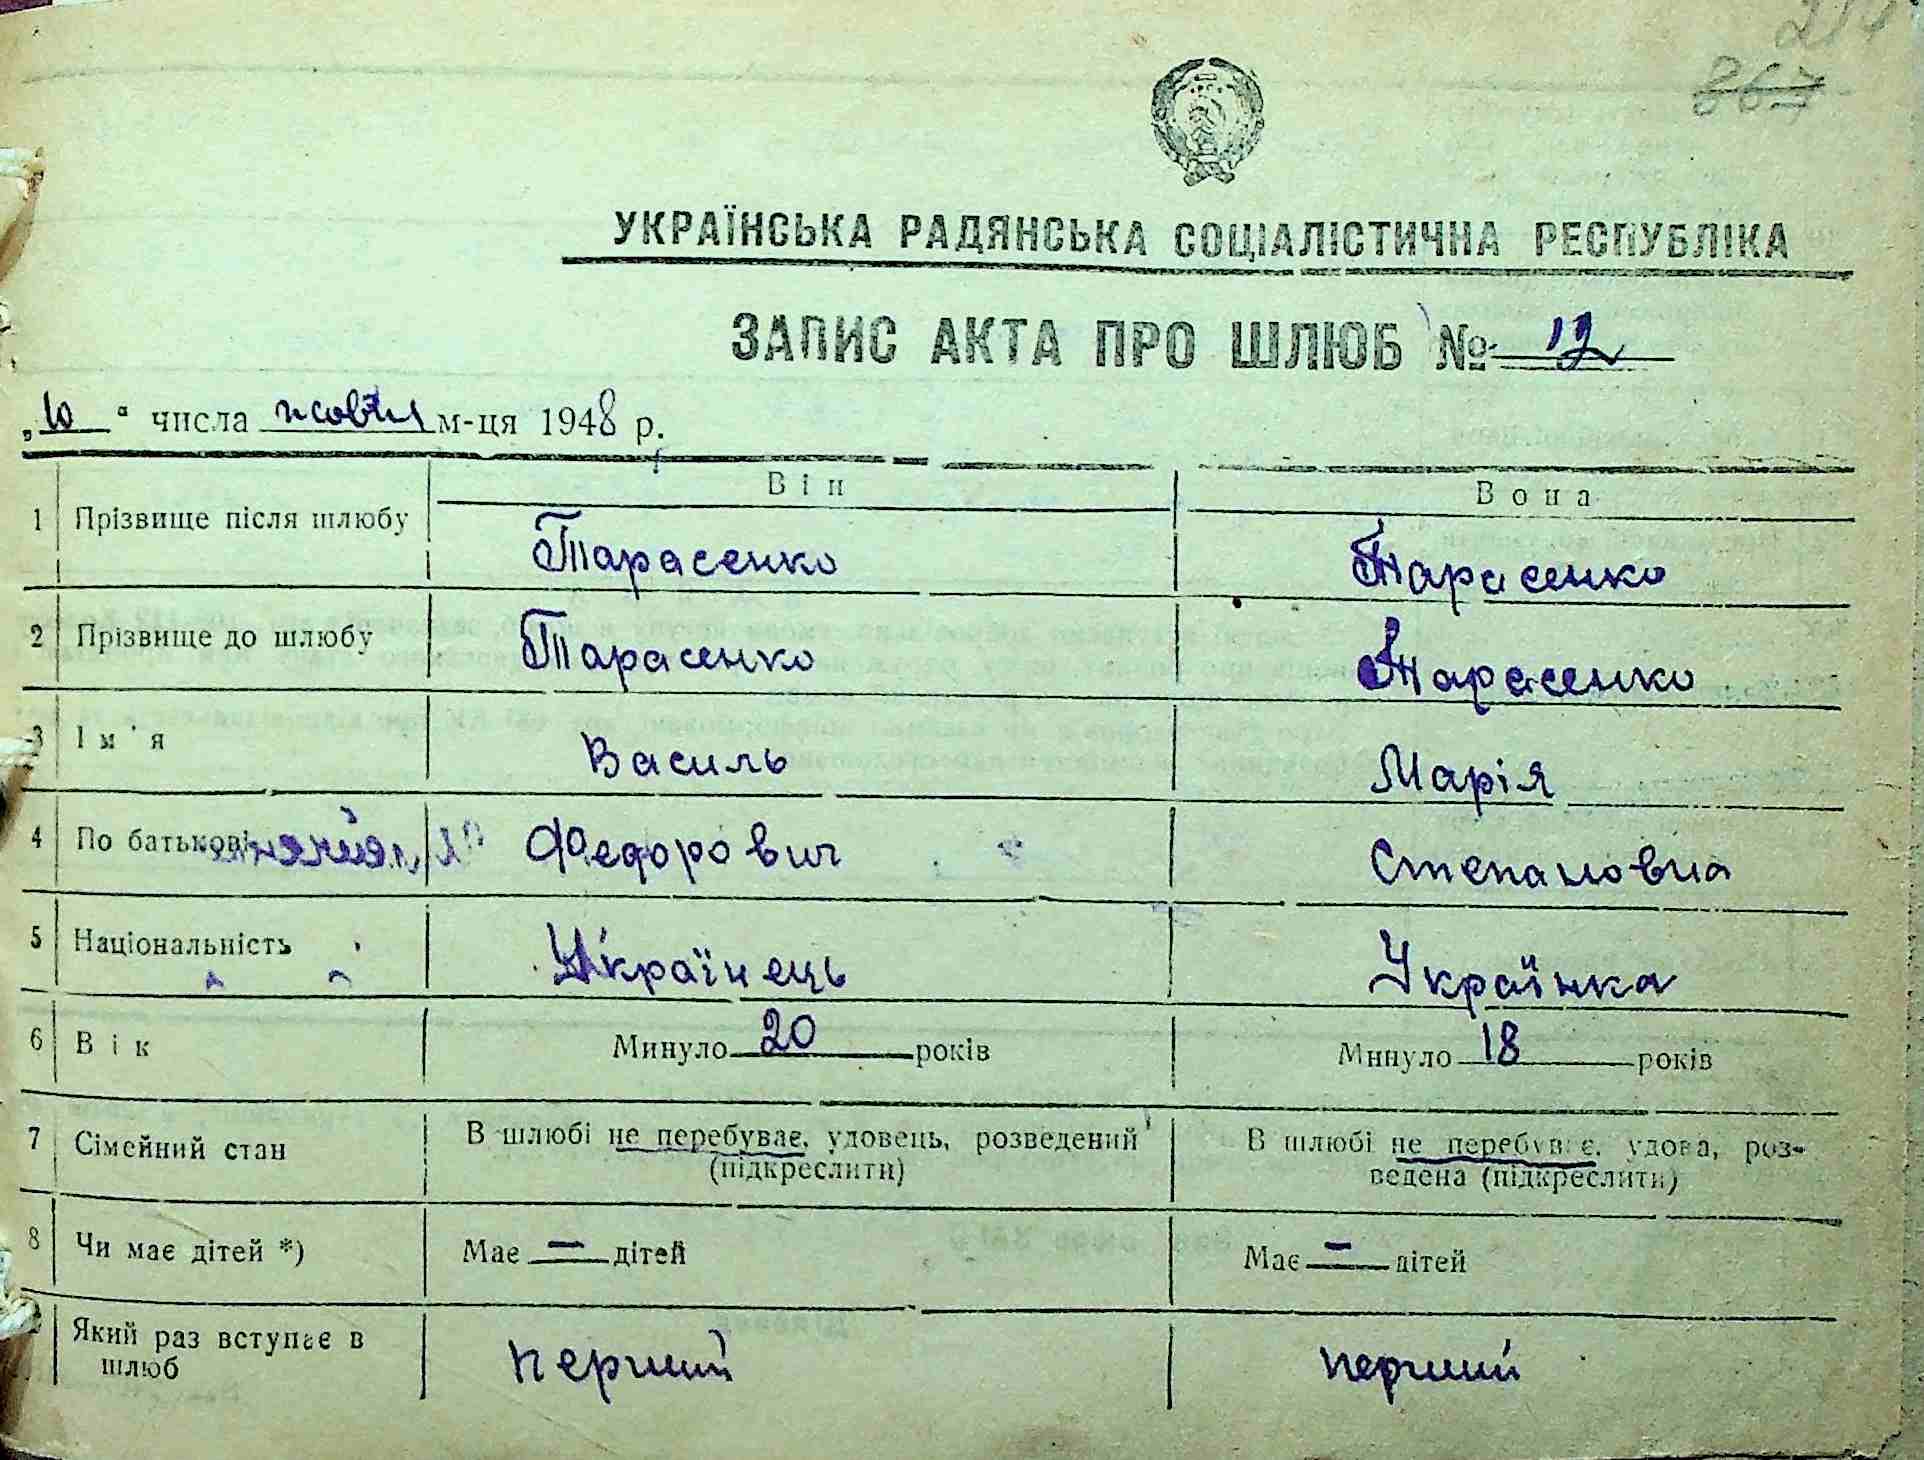 867
УКРАЇНСЬКА РАДЯНСЬКА СОЦІАЛІСТИЧНА РЕСПУБЛІКА
ЗАПИС АКТА ПРО ШЛЮБ № 12
„10“ числа жовтня м-ця 1948 р.
Він Вона
1 Прізвище після шлюбу Тарасенко Тарасенко
2 Прізвище до шлюбу Тарасенко Тарасенко
3 Ім'я Василь Марія
4 По батькові Федорович Степановна
5 Національність Українець Українка
6 Вік Минуло 20 років Минуло 18 років
7 Сімейний стан В шлюбі не перебуває, удовець, розведений (підкреслити) В шлюбі не перебуває, удова, роз-
ведена (підкреслити)
8 Чи має дітей *) Має — дітей Має — дітей
Який раз вступає в шлюб перший перший